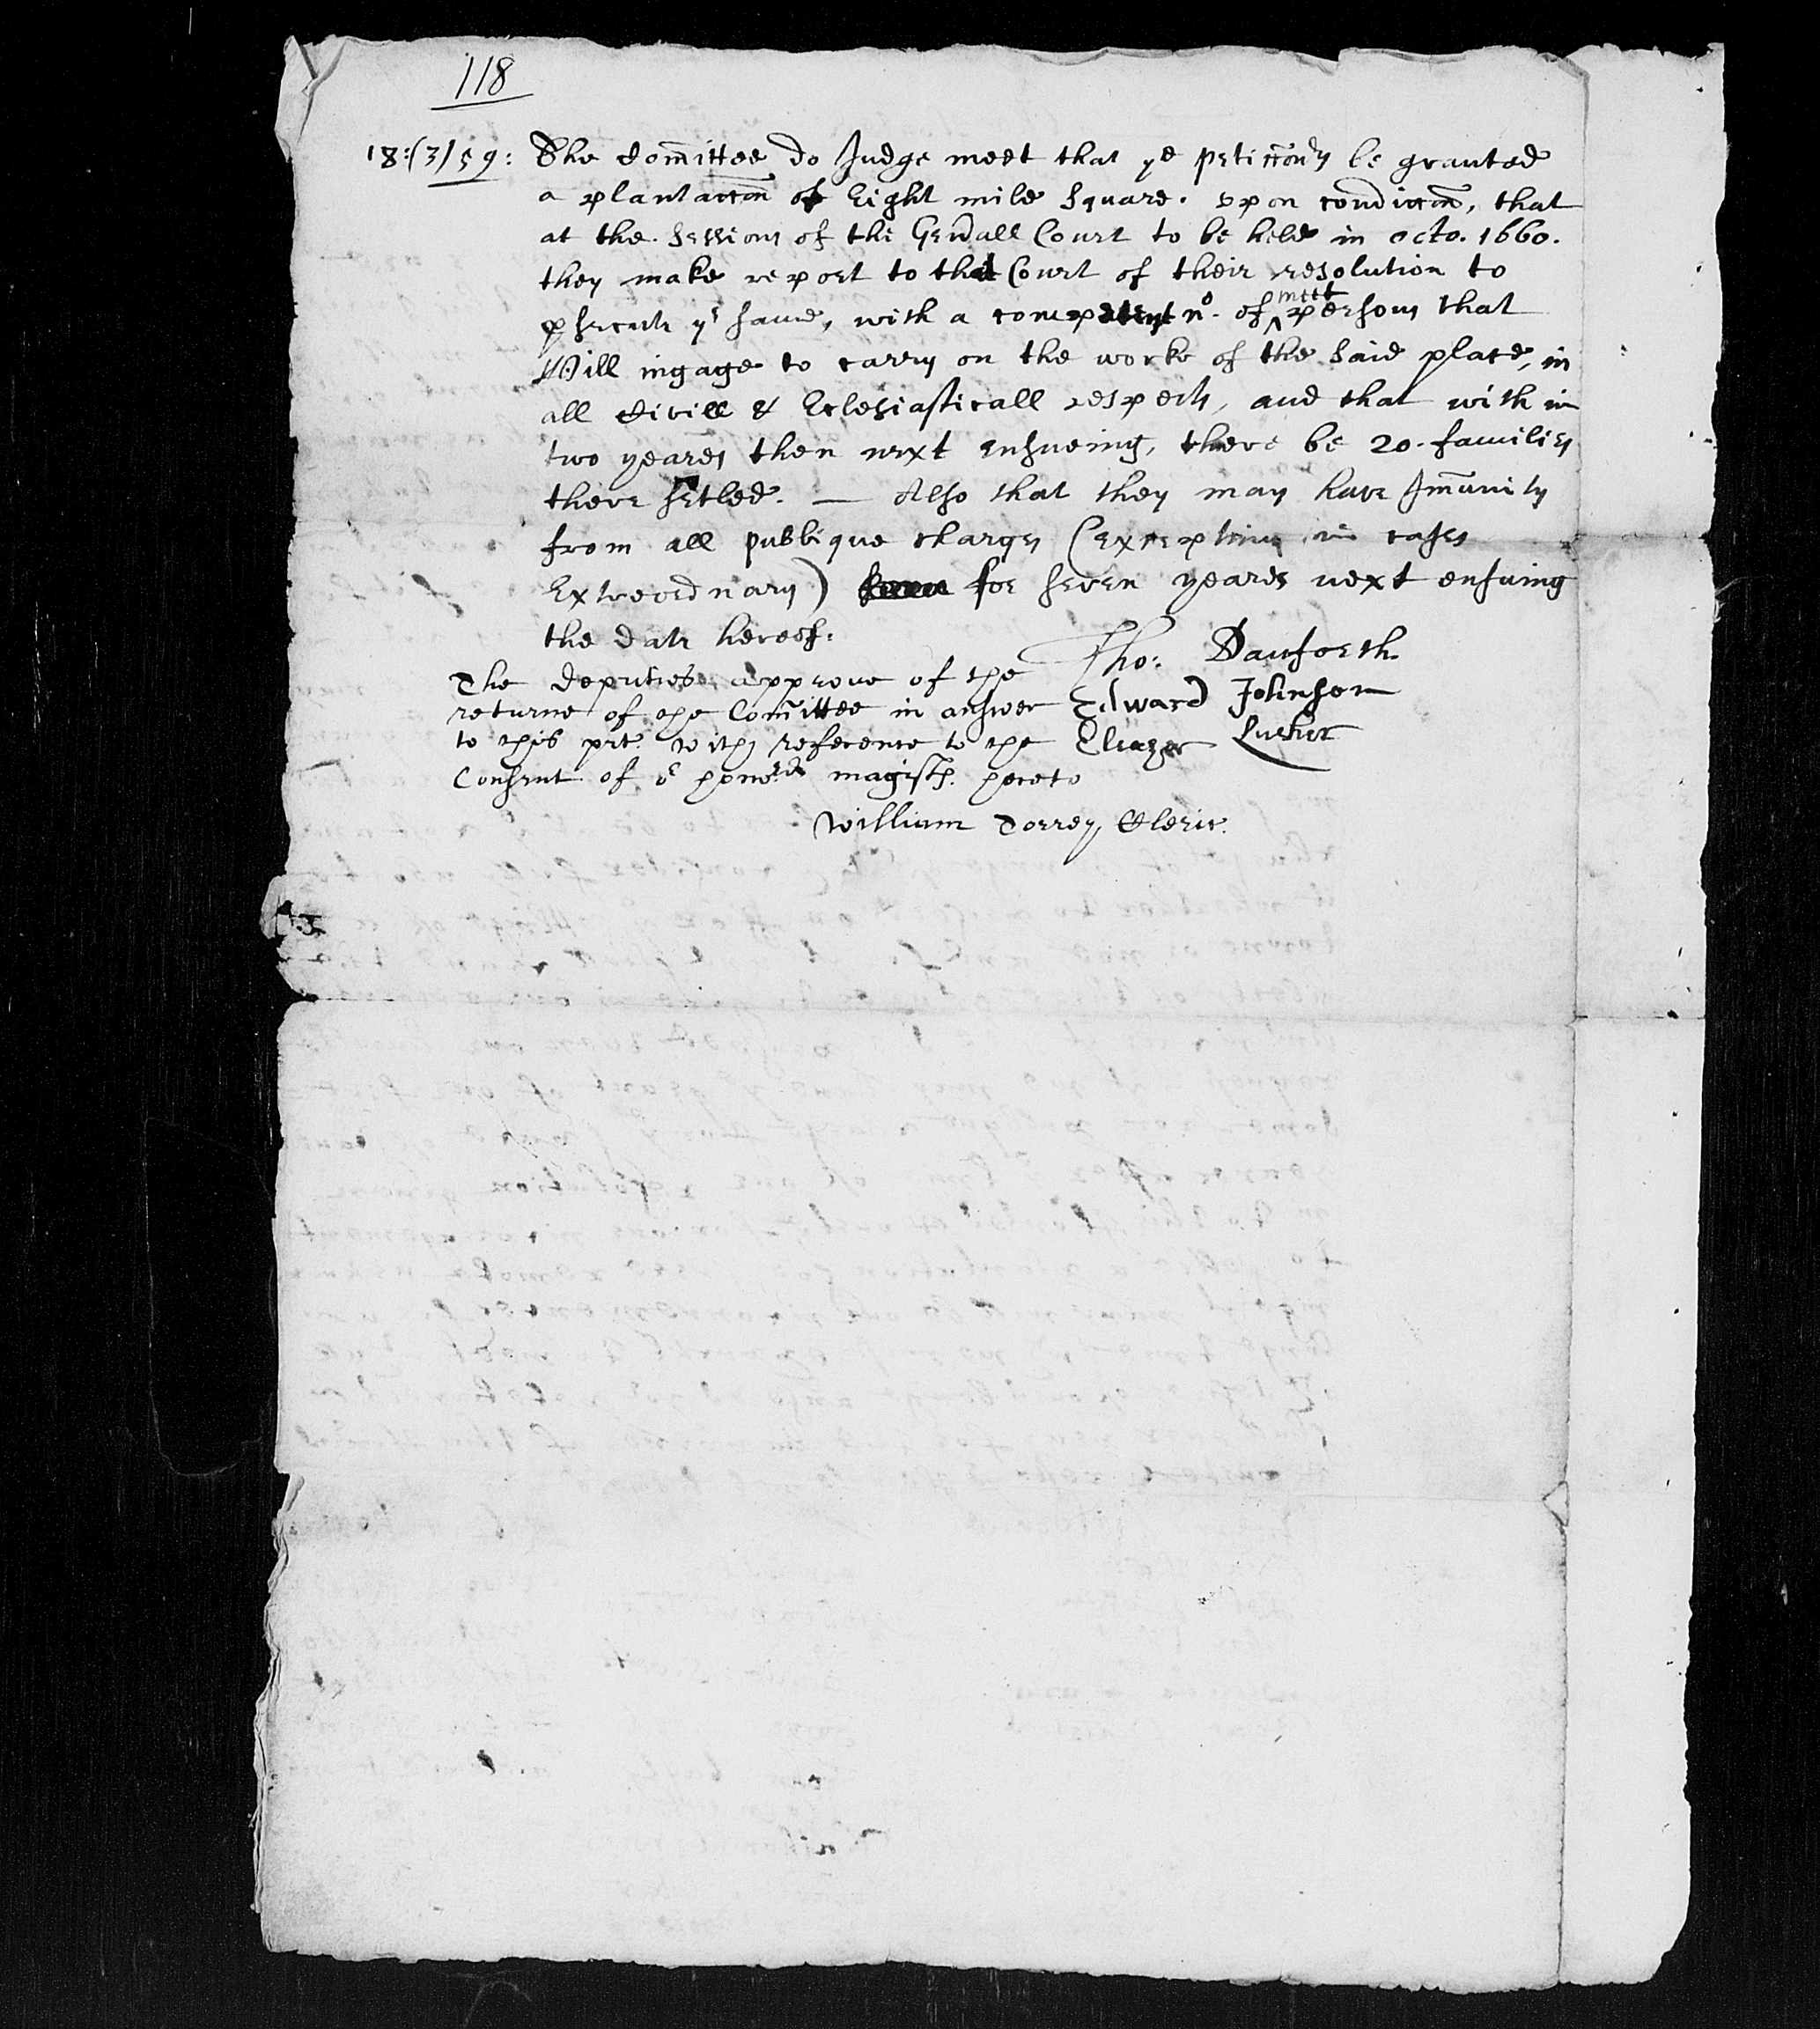 118
18:(3)59: The Com̃ittee do Judge meet that yᵉ peticon̄ʳˢ be granted
a plantaccon̄ of Eight mile square. upon condiccon̄, that
at the sessions of the Gen̄all Court to be held in octo. 1660.
they make report to that Court of their resolution to
psecute yᵉ same, with a competent nᵒ. of ^meet persons that
Will ingage to carry on the worke of the said place, in
all Civill & Eclesiasticall respects, and that with in
two yeares then next ensueing, there be 20. families
there setled. — Also that they may have Im̄unity
from all publique charges (excepting in cases
Extreordnary) for seven yeares next ensuing
the date hereof.
Tho: Danforth
The deputies approue of the
returne of the Com̃ittee in answer Edward Johnson
to this pet. with reference to the Eliazer Lusher
Consent of oʳ honoʳᵈ magistˢ. hereto
William Torrey Cleric.